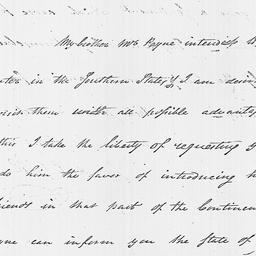 My brother Mr Payne intends to
in the Southern States, & I am desir
them with all possible advanta
this I take the liberty of requesting y
do him the favor of introducing h
friends in that part of the Continen
can inform you the State of